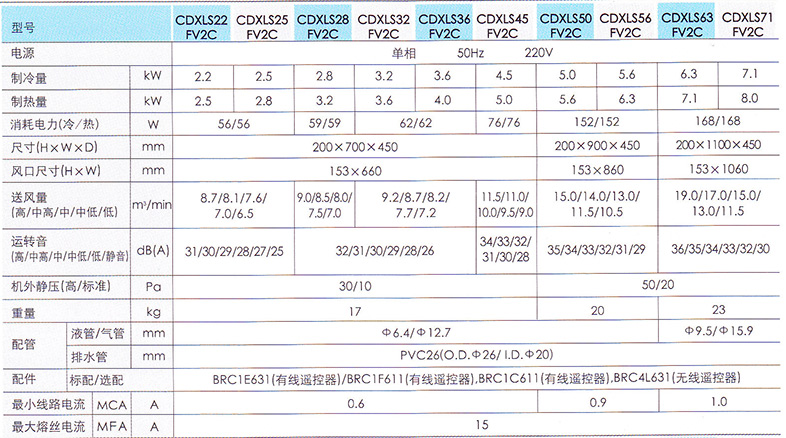 型号 CDXLS22FV2C CDXLS25FV2C CDXLS28FV2C CDXLS32FV2C CDXLS36FV2C CDXLS45FV2C CDXLS50FV2C CDXLS56FV2C CDXLS63FV2C CDXLS71FV2C
电源 单相 50Hz 220V
制冷量 kW 2.2 2.5 2.8 3.2 3.6 4.5 5.0 5.6 6.3 7.1
制热量 kW 2.5 2.8 3.2 3.6 4.0 5.0 5.6 6.3 7.1 8.0
消耗电力(冷/热) W 56/56 59/59 62/62 76/76 152/152 168/168
尺寸(H×W×D) mm 200×700×450 200×900×450 200×1100×450
风口尺寸(H×W) mm 153×660 153×860 153×1060
送风量 (高/中高/中/中低/低) m³/min 8.7/8.1/7.6/7.0/6.5 9.0/8.5/8.0/7.5/7.0 9.2/8.7/8.2/7.7/7.2 11.5/11.0/10.0/9.5/9.0 15.0/14.0/13.0/11.5/10.5 19.0/17.0/15.0/13.0/11.5
运转音 (高/中高/中/中低/低/静音) dB(A) 31/30/29/28/27/25 32/31/30/29/28/26 34/33/32/31/30/28 35/34/33/32/31/29 36/35/34/33/32/30
机外静压(高/标准) Pa 30/10 50/20
重量 kg 17 20 23
配管 液管/气管 mm Φ6.4/Φ12.7 Φ9.5/Φ15.9
排水管 mm PVC26(O.D.Φ26/ I.D.Φ20)
配件 标配/选配 BRC1E631(有线遥控器)/BRC1F611(有线遥控器),BRC1C611(有线遥控器),BRC4L631(无线遥控器)
最小线路电流 MCA A 0.6 0.9 1.0
最大熔丝电流 MFA A 15